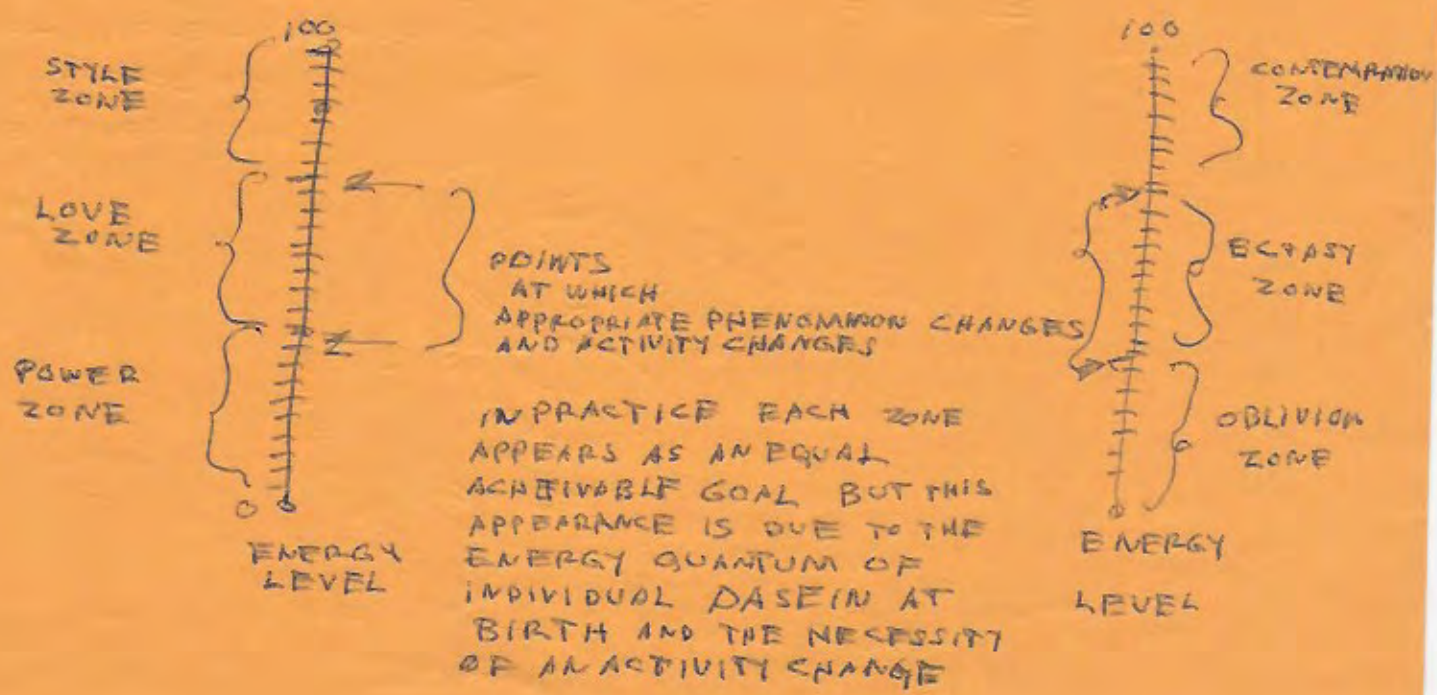 100
STYLE
ZONE
LOVE
ZONE
POWER
ZONE
0
ENERGY
LEVEL
POINTS
AT WHICH
APPROPRIATE PHENOMMNON CHANGES
AND ACTIVITY CHANGES
IN PRACTICE EACH ZONE
APPEARS AS AN EQUAL
ACHEIVABLE GOAL BUT THIS
APPEARANCE IS DUE TO THE
ENERGY QUANTUM OF
INDIVIDUAL DASEIN AT
BIRTH AND THE NECESSITY
OF AN ACTIVITY CHANGE
100
CONTEMPLATION
ZONE
ECTASY
ZONE
OBLIVION
ZONE
0
ENERGY
LEVEL